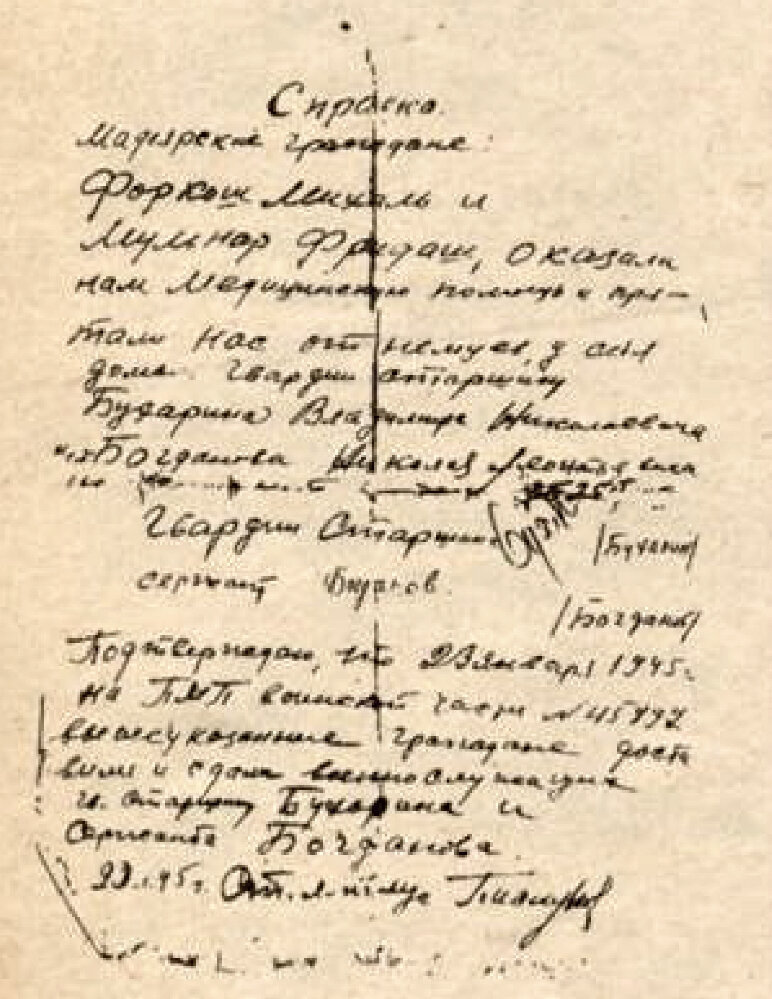 Справка.
Мадярские граждане:
Форкош Михаль и
Мулнар Фридаш, оказали
нам медицинскую помощь и пря-
тали нас от немцев, у себя
дома. Гвардии старшину
Бухарина Владимира Николаевича
Богданова Николая
Гвардии Старшина
/Бухарин/
сержант Богданов.
/Богданов/
Подтверждаю, что 23 января 1945г.
на ПМП воинской части №
вышеуказанные граждане доста
вили и сдали военнослужащих
старшину Бухарина и
Сержанта Богданова.